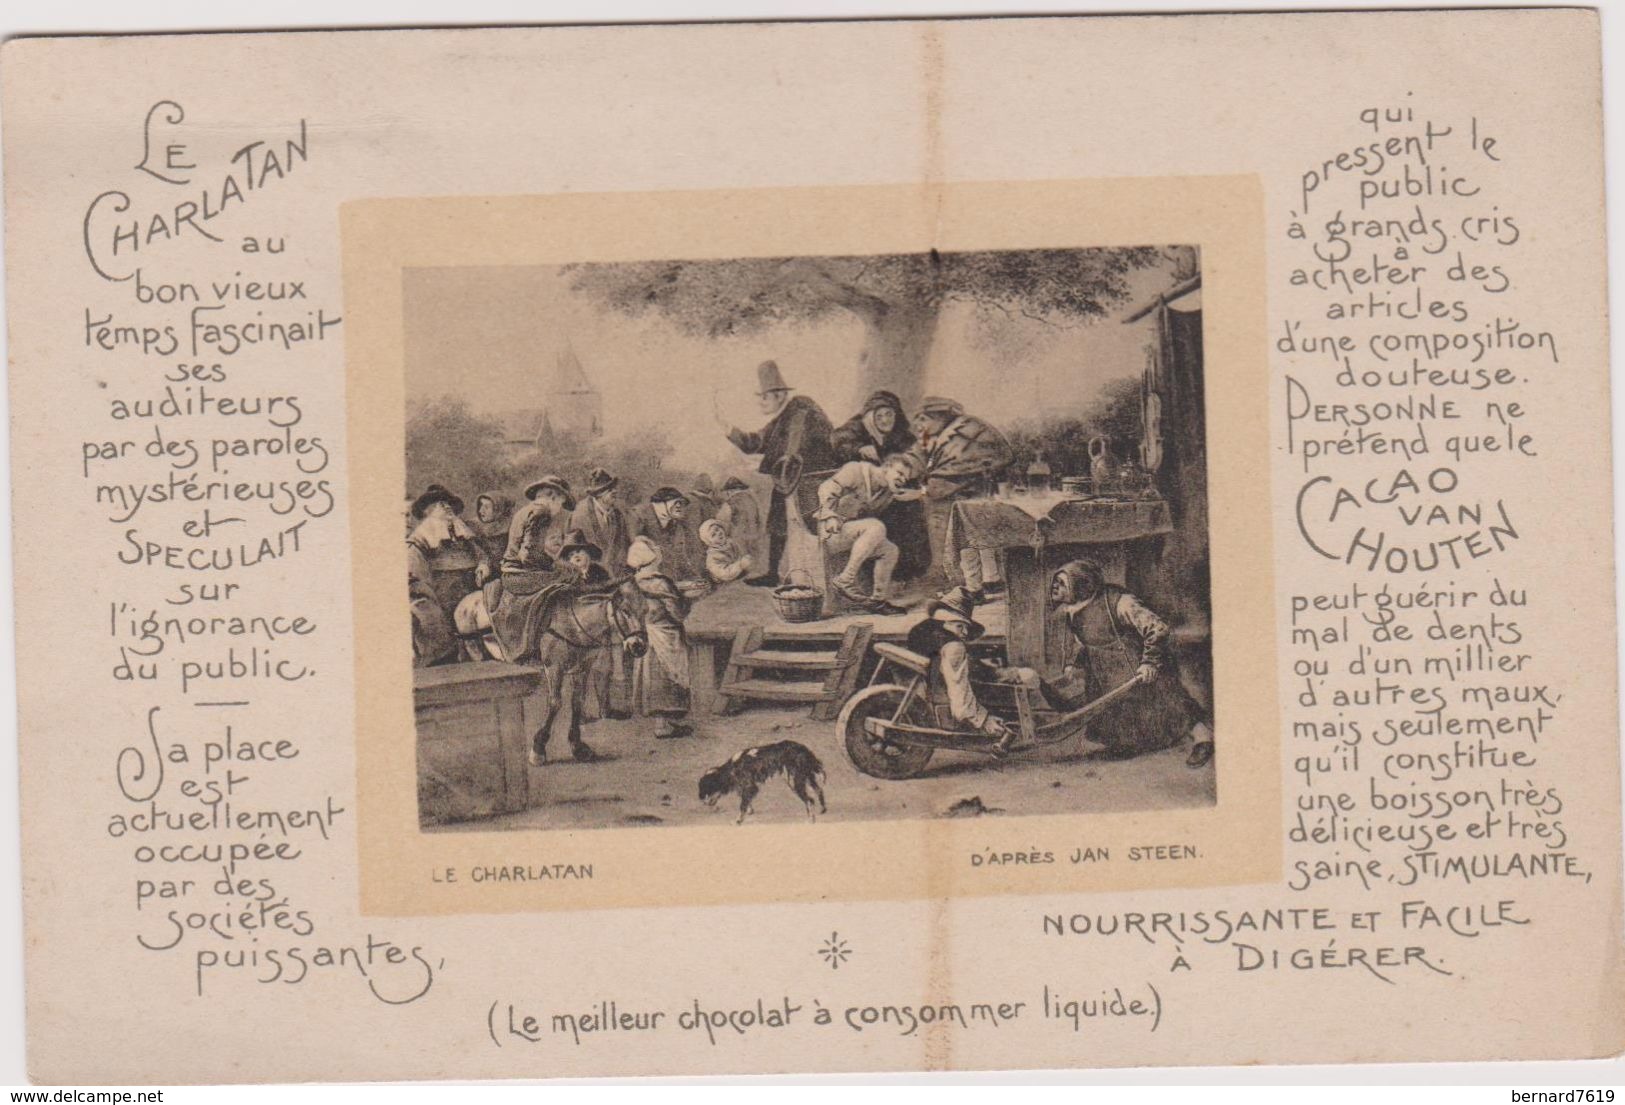 LE
CHARLATAN
au
bon vieux
temps fascinait
ses
auditeurs
par des paroles
mystérieuses
et
SPECULAIT
sur
l'ignorance
du public.
Sa place
est
actuellement
occupée
par des
sociétés
puissantes,
qui
pressent le
public
à grands cris
à
acheter des
articles
d'une composition
douteuse.
PERSONNE ne
prétend que le
CACAO
VAN
HOUTEN
peut guérir du
mal de dents
ou d'un millier
d'autres maux,
mais seulement
qu'il constitue
une boisson très
délicieuse et très
saine, STIMULANTE,
NOURRISSANTE ET FACILE
À DIGÉRER.
LE CHARLATAN
D'APRÈS JAN STEEN.
(Le meilleur chocolat à consommer liquide.)
www.delcampe.net
bernard7619